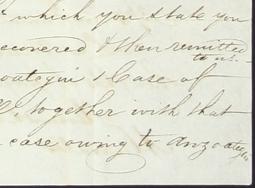 which you state you
recovered & then remitted
to us.
Case of
together with that
case owing to